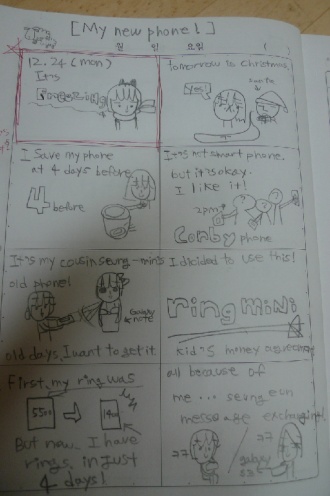 [My new phone!]
월 일 요일 ( )
12.24 (mon)
It's
Freezing
tomorrow is Christmas
yes!
Santa
I save my phone
at 4 days before
4 before
It's not smart phone.
but it's okay.
I like it!
2pm
Corby phone
It's my cousin seung-min's
old phone!
Galaxy
NOTE
old days, I want to get it
I dicided to use this!
ring mini
kid's money
First, my ring was
5500
But now, I have
rings in just
4 days!
all because of
me ... seung eun
message exchanging!